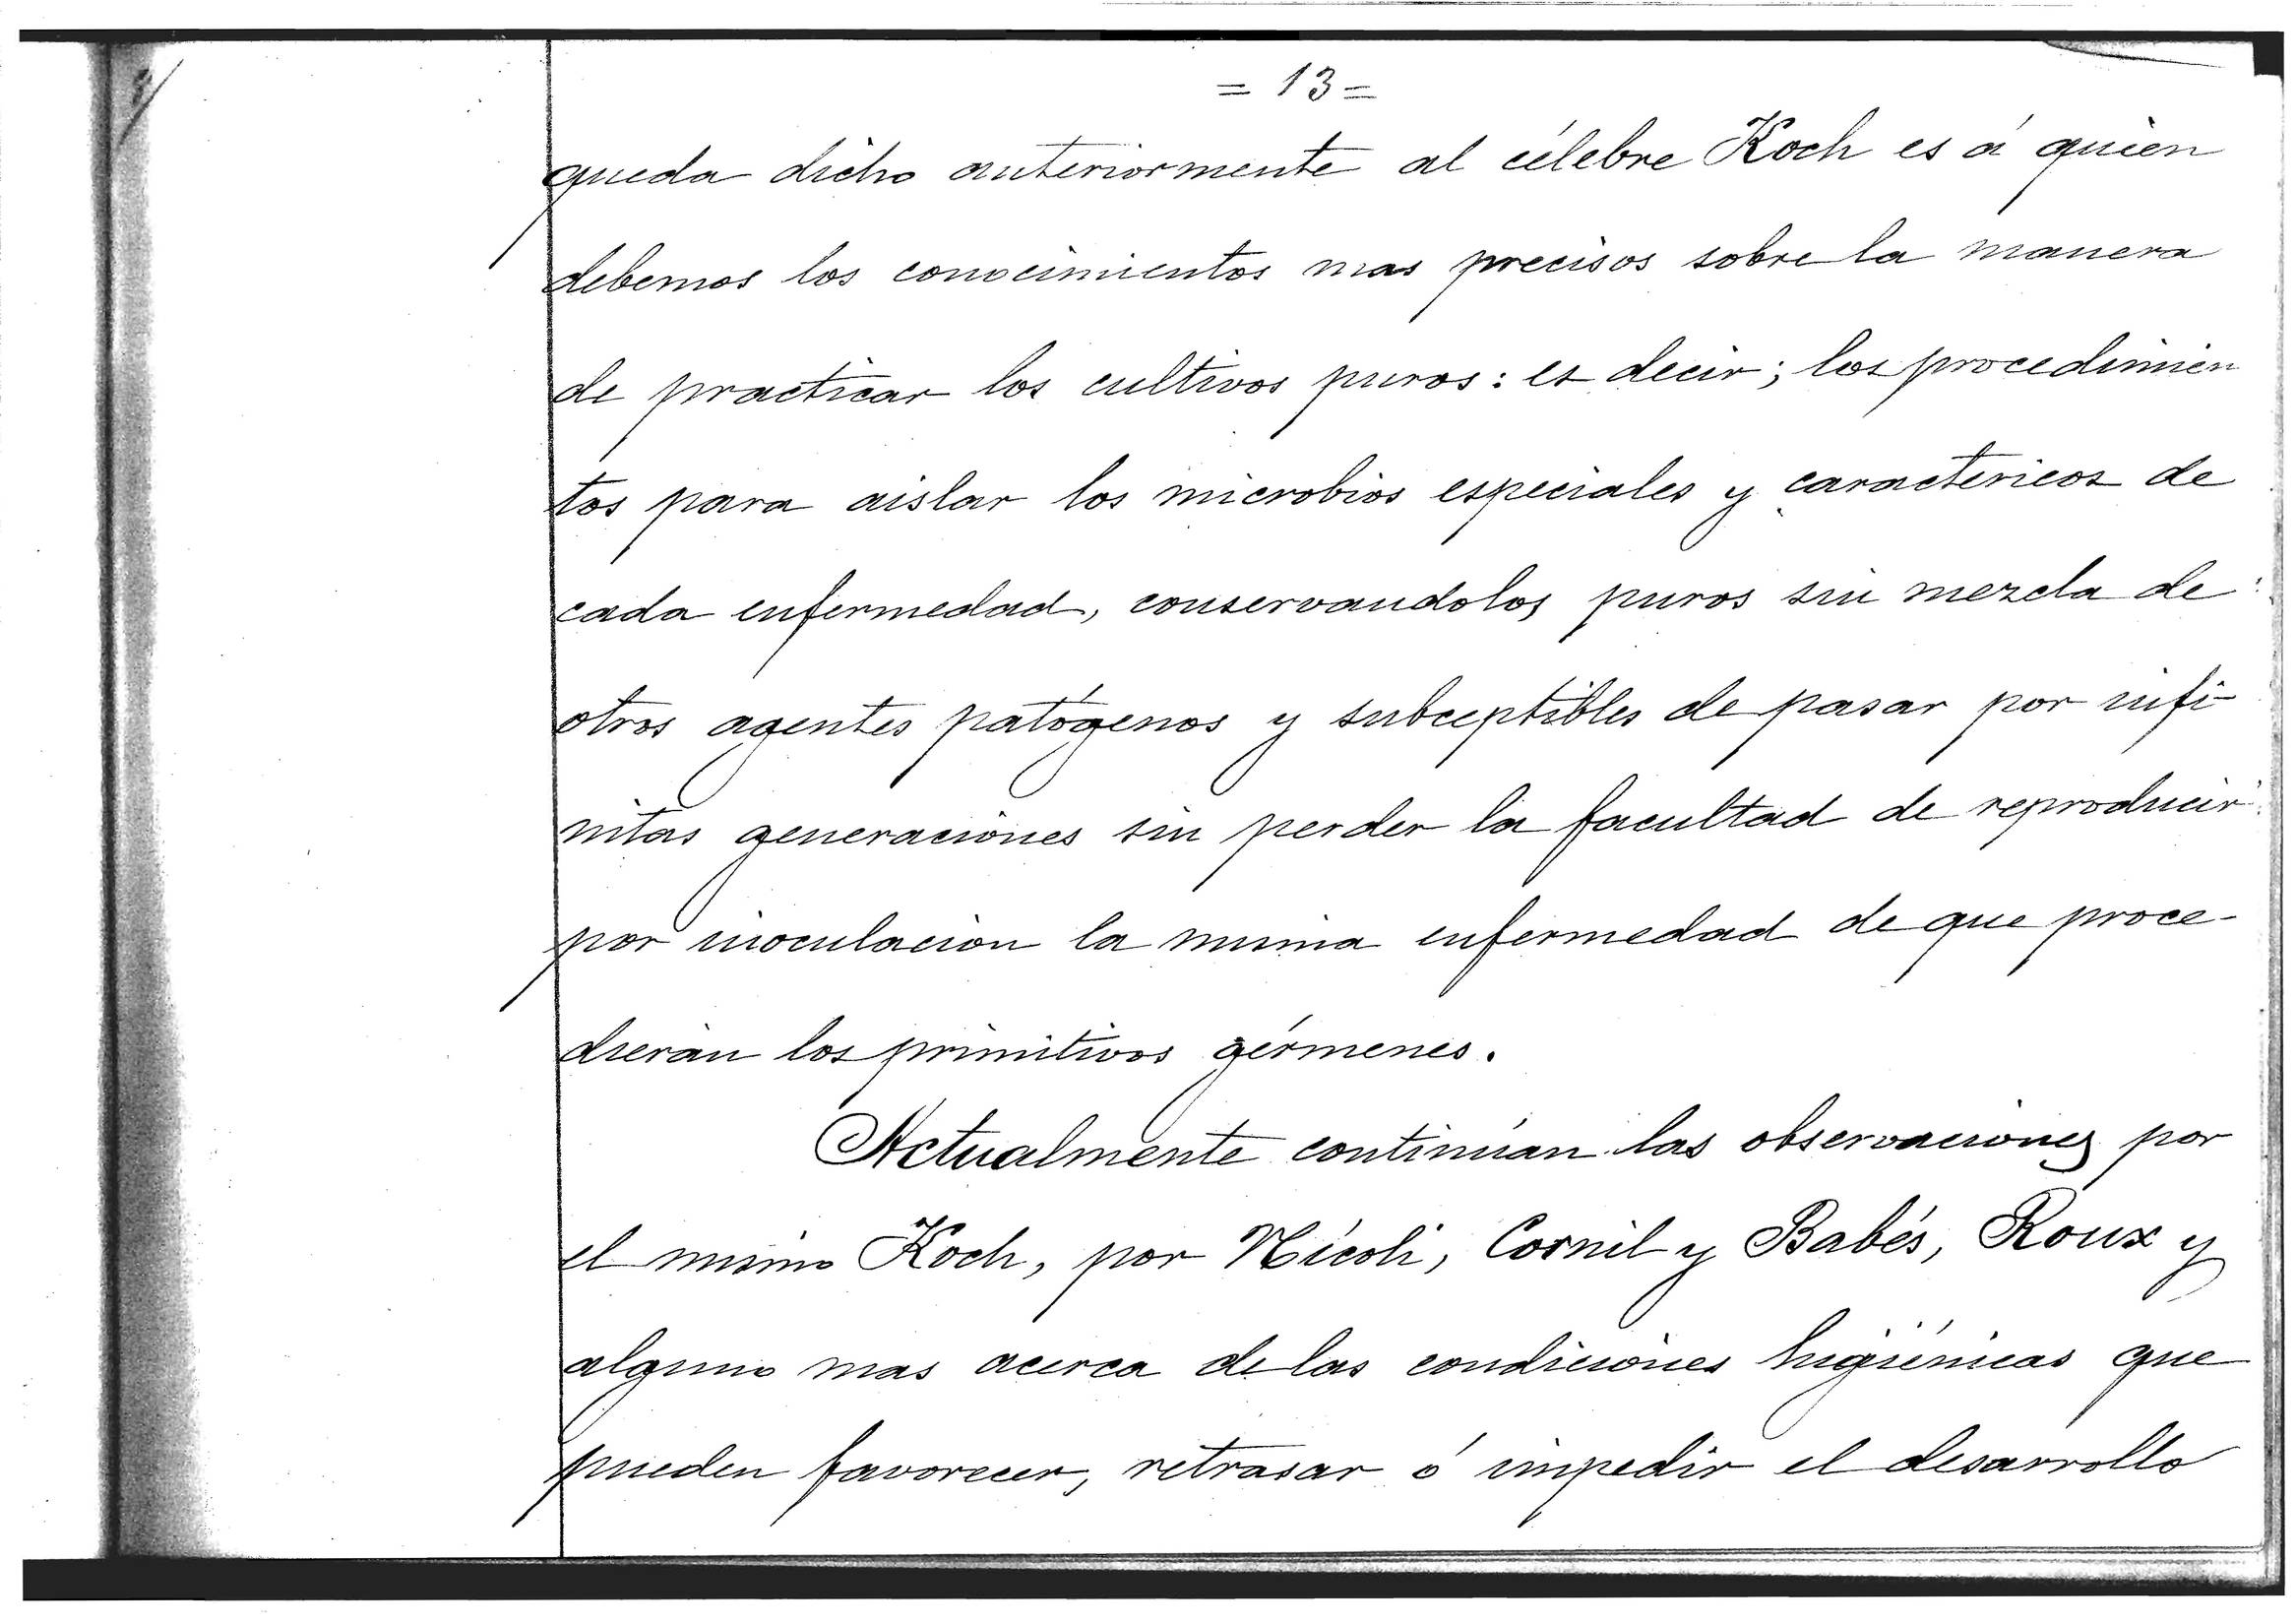 = 13 =
queda dicho anteriormente al célebre Koch es á quien
debemos los conocimientos mas precisos sobre la manera
de practicar los cultivos puros: es decir; los procedimien
tos para aislar los microbios especiales y caractericos de
cada enfermedad, conservandolos puros sin mezcla de
otros agentes patógenos y subceptibles de pasar por infi-
nitas generaciones sin perder la facultad de reproducir
por inoculacion la misma enfermedad de que proce-
dieran los primitivos gérmenes.
Actualmente continúan las observaciones por
el mismo Koch, por Nícoli, Cornil y Babés, Roux y
alguno mas acerca de las condiciones higiénicas que
pueden favorecer, retrasar ó impedir el desarrollo